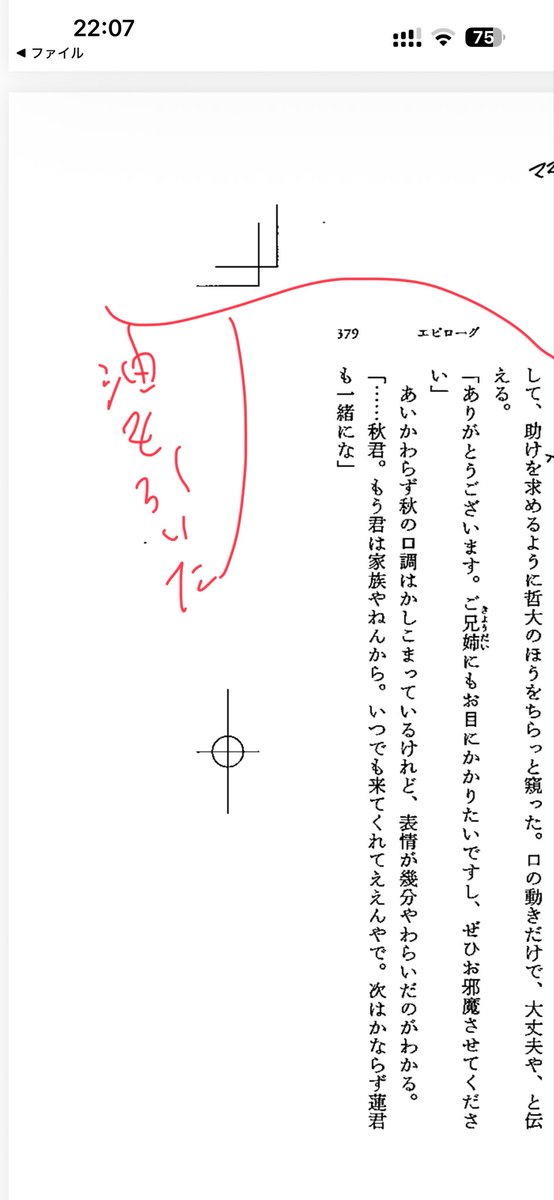 22:07
75
◀ ファイル
379
エピローグ
して、助けを求めるように哲大のほうをちらっと窺った。口の動きだけで、大丈夫や、と伝
える。
「ありがとうございます。ご兄姉にもお目にかかりたいですし、ぜひお邪魔させてくださ
きょうだい
い」
あいかわらず秋の口調はかしこまっているけれど、表情が幾分やわらいだのがわかる。
「……秋君。もう君は家族やねんから。いつでも来てくれてええんやで。次はかならず蓮君
も一緒にな」